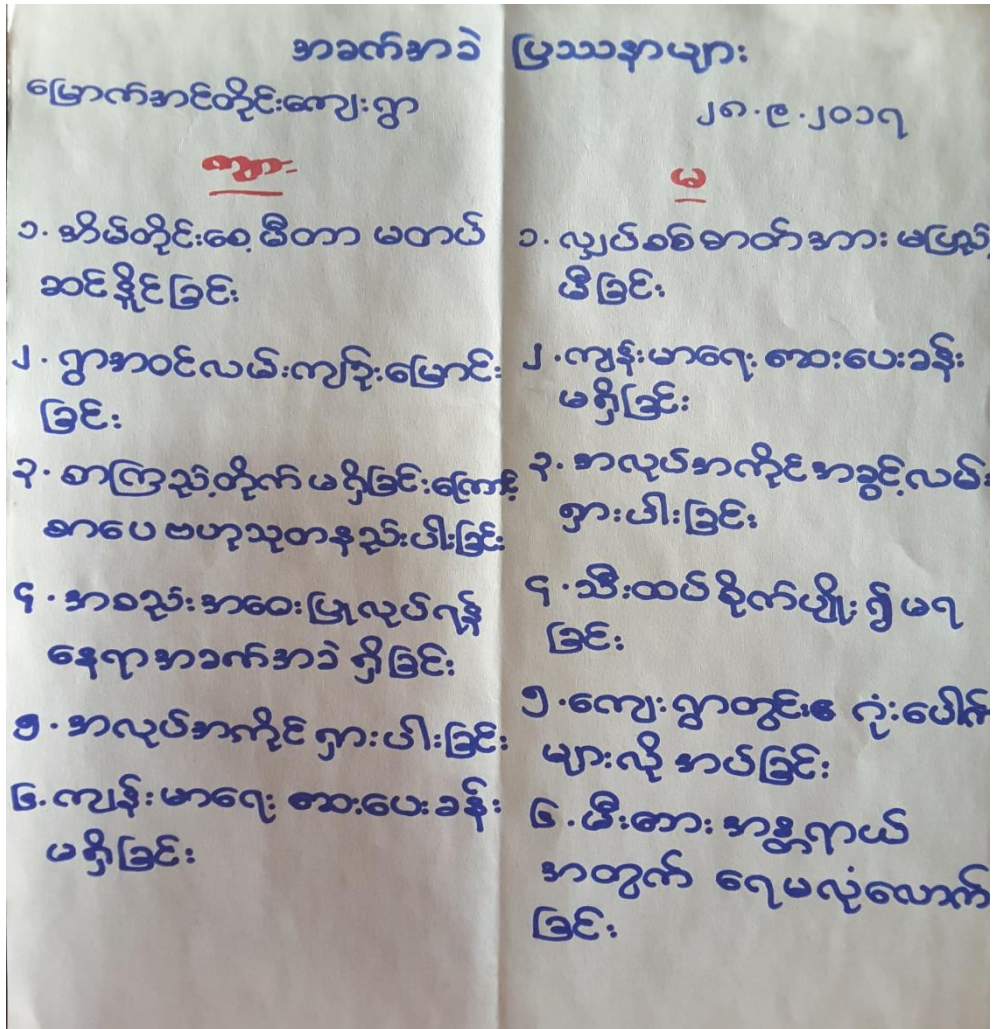 အခက်အခဲ ပြဿနာများ
မြောက်အင်တိုင်းကျေးရွာ
၂၈.၉.၂၀၁၇
ကျား
၁. အိမ်တိုင်းစေ့ မီတာ မတပ်
ဆင်နိုင်ခြင်း
၂. ရွာအဝင်လမ်းကျဉ်းမြောင်း
ခြင်း
၃. စာကြည့်တိုက် မရှိခြင်းကြောင့်
စာပေ ဗဟုသုတနည်းပါးခြင်း
၄. အစည်းအဝေးပြုလုပ်ရန်
နေရာအခက်အခဲ ရှိခြင်း
၅. အလုပ်အကိုင် ရှားပါးခြင်း
၆. ကျန်းမာရေး ဆေးပေးခန်း
မရှိခြင်း
မ
၁. လျှပ်စစ်ဓာတ်အား မပြည့်
မီခြင်း
၂. ကျန်းမာရေး ဆေးပေးခန်း
မရှိခြင်း
၃. အလုပ်အကိုင်အခွင့်လမ်း
ရှားပါးခြင်း
၄. သီးထပ်စိုက်ပျိုး၍ မရ
ခြင်း
၅. ကျေးရွာတွင်း ဂုံးပေါက်
များလိုအပ်ခြင်း
၆. မီးဘေး အန္တရာယ်
အတွက် ရေမလုံလောက်
ခြင်း